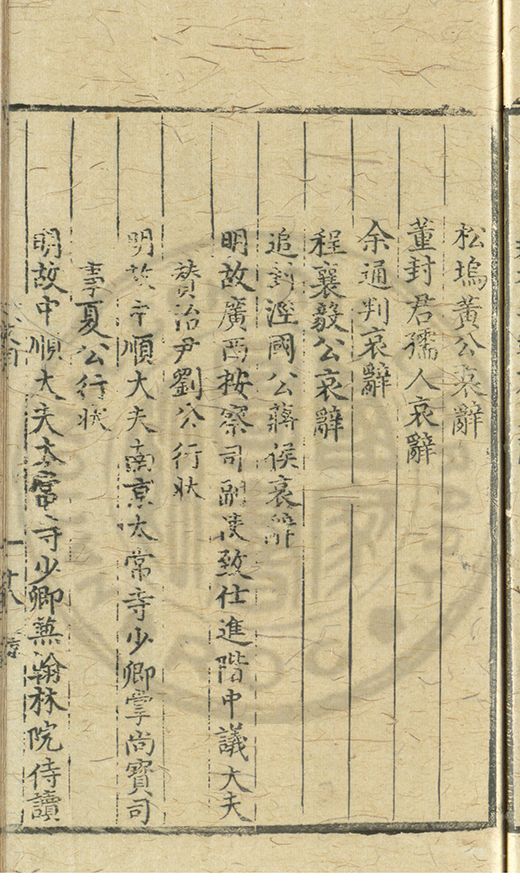 松塢黃公哀辭
董封君孺人哀辭
余通判哀辭
程襄毅公哀辭
追封涇國公蔣侯哀辭
明故廣西按察司副使致仕進階中議大夫
贊治尹劉公行狀
明故中順大夫南京太常寺少卿掌尚寶司
事夏公行狀
明故中順大夫太常寺少卿兼翰林院侍讀